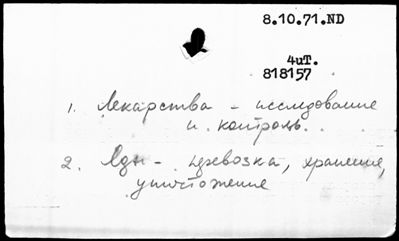 8.10.71.ND
4иТ.
818157
1. Лекарства - исследование
и контроль.
2. Яды - перевозка, хранение,
уничтожение